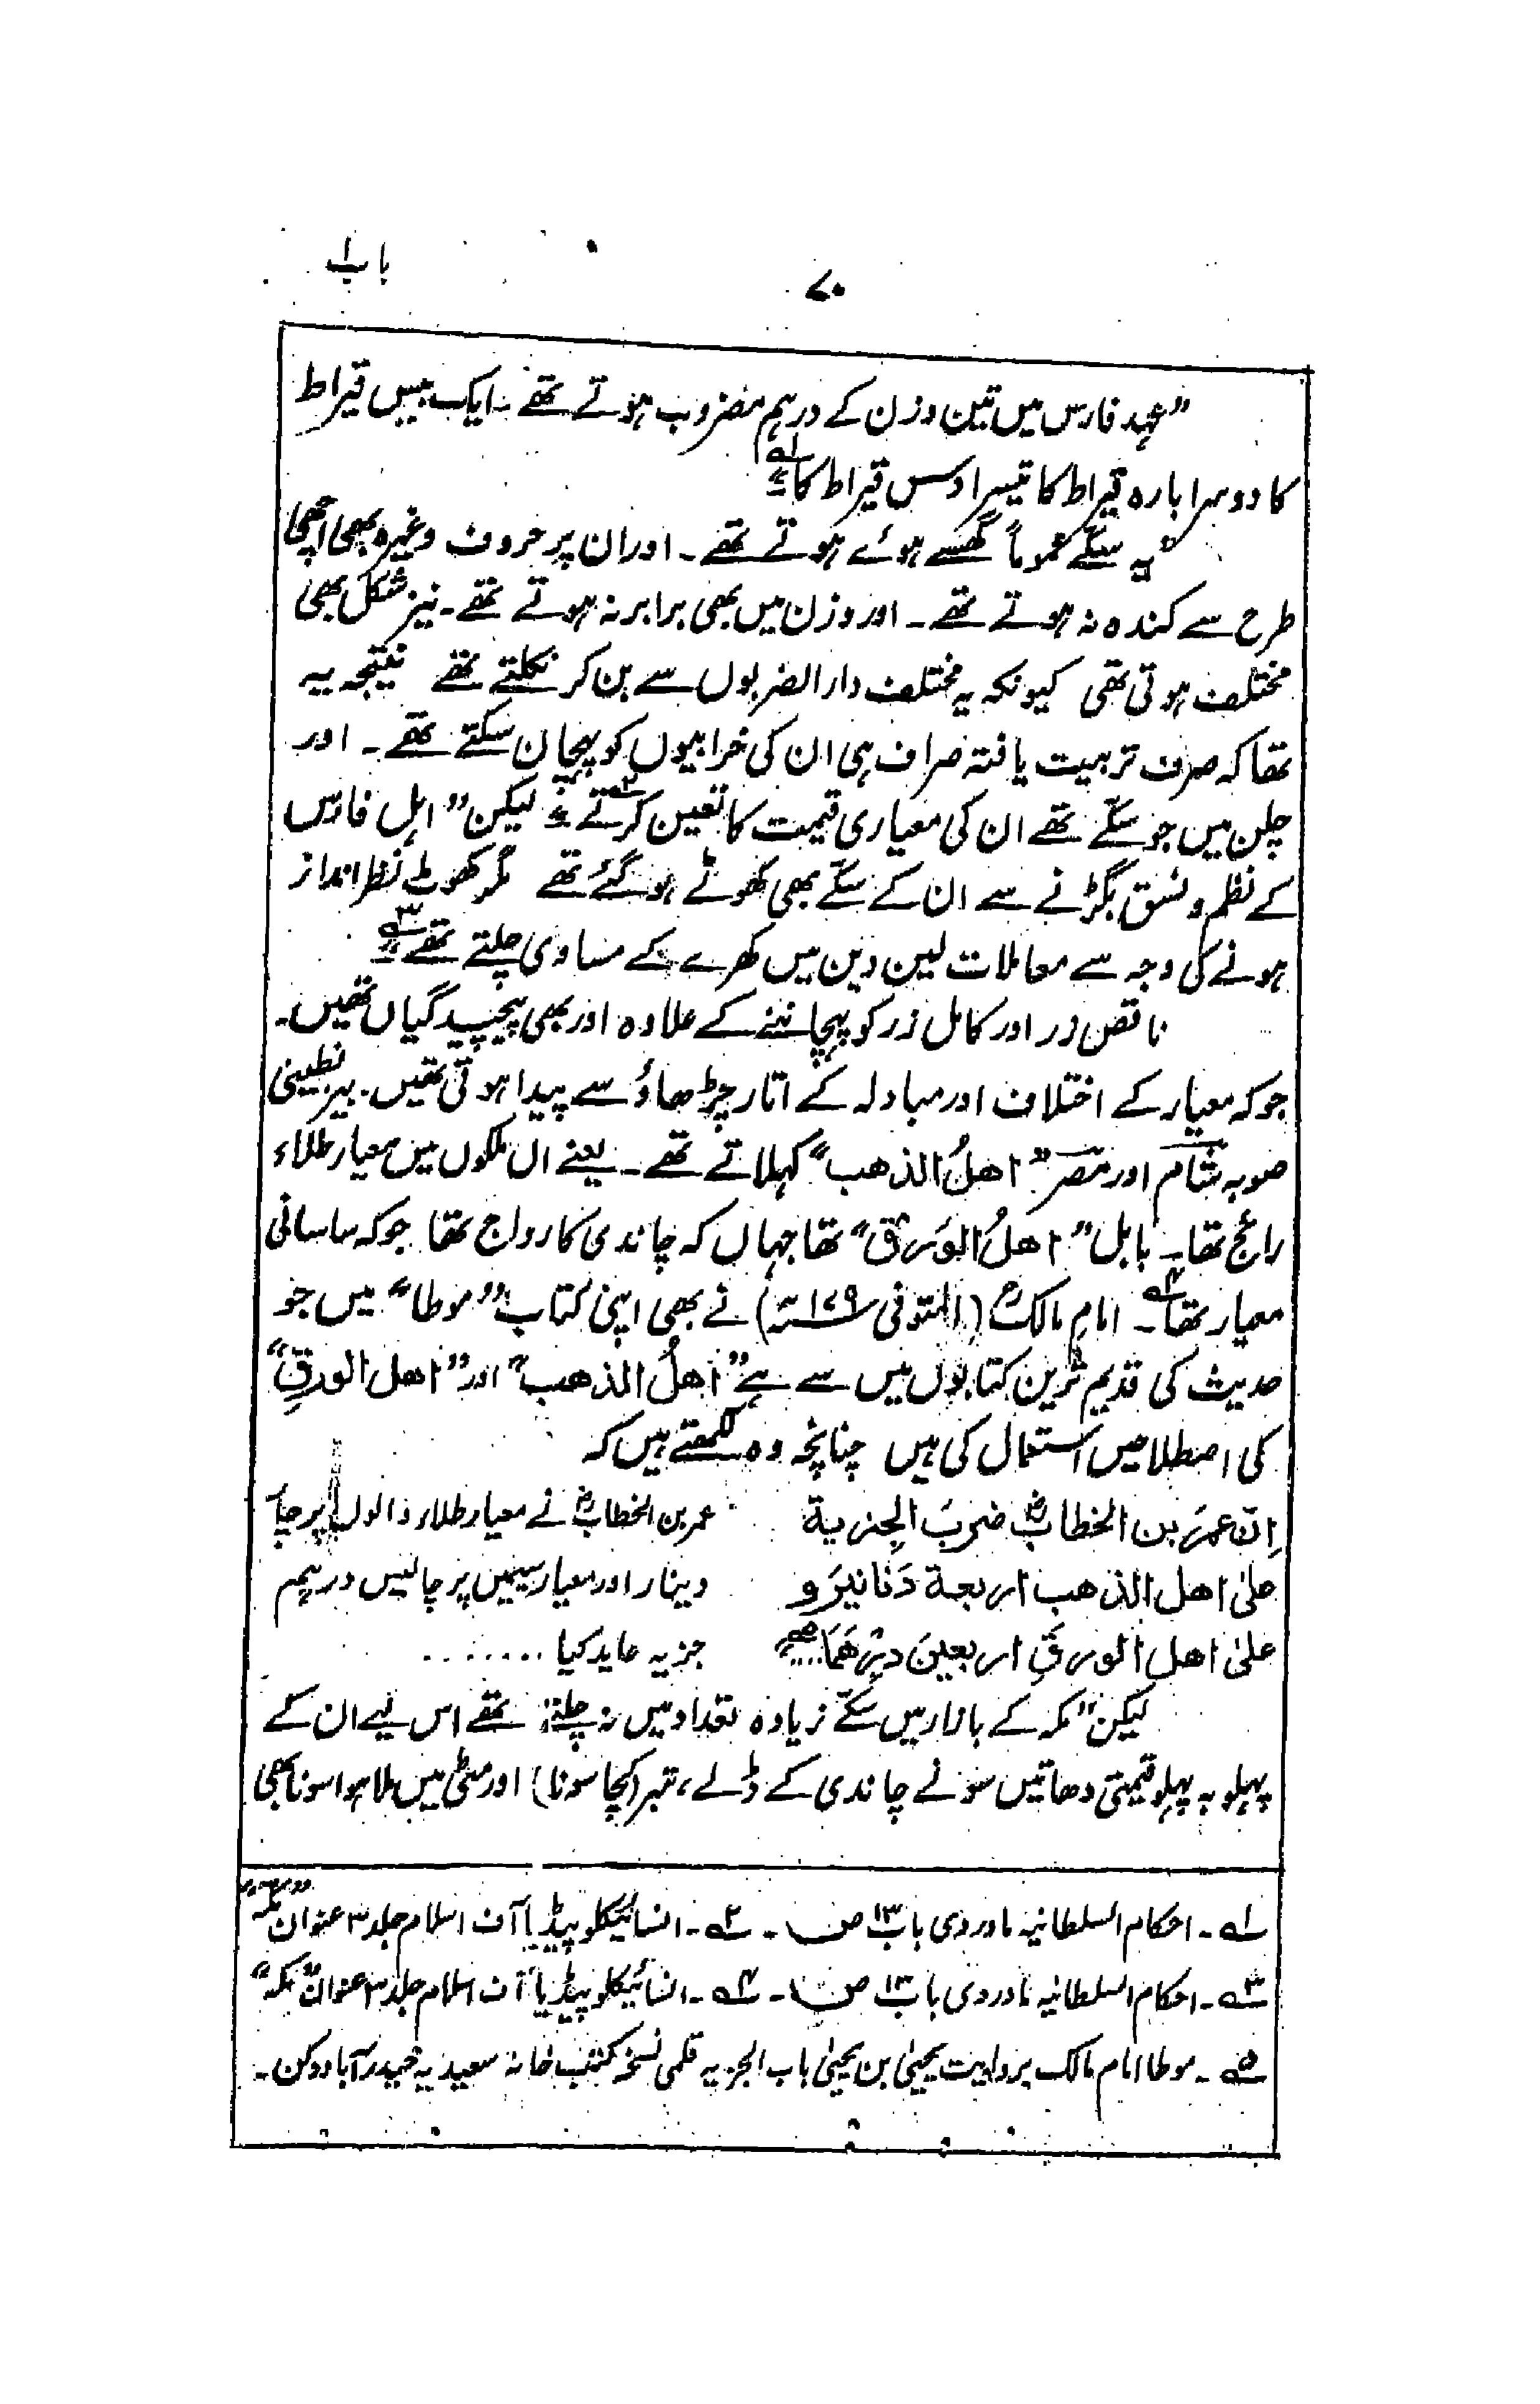 باب ۱
۷۰
”عہد فارس میں تین وزن کے درہم مضروب ہوتے تھے ۔ ایک بیس قیراط
کا دوسرا بارہ قیراط کا تیسرا دس قیراط کا“ ۱؎
”یہ سکّے عموماً گھسے ہوئے ہوتے تھے ۔ اور ان پر حروف وغیرہ بھی اچھی
طرح سے کندہ نہ ہوتے تھے ۔ اور وزن میں بھی برابر نہ ہوتے تھے ۔ نیز شکل بھی
مختلف ہوتی تھی کیونکہ یہ مختلف دارالضربوں سے بن کر نکلتے تھے نتیجہ یہ
تھا کہ صرف تربیت یافتہ صراف ہی ان کی خرابیوں کو پہچان سکتے تھے ۔ اور
چلن میں جو سکّے تھے ان کی معیاری قیمت کا تعین کرتے“ ۲؎ لیکن ”اہل فارس
کے نظم و نسق بگڑنے سے ان کے سکّے بھی کھوٹے ہو گئے تھے مگر کھوٹ نظر انداز
ہونے کی وجہ سے معاملات لین دین میں کھرے کے مساوی چلتے تھے“ ۳؎
ناقص زر اور کامل زر کو پہچاننے کے علاوہ اور بھی پیچیدگیاں تھیں۔
جو کہ معیار کے اختلاف اور مبادلہ کے اتار چڑھاؤ سے پیدا ہوتی تھیں ۔ بیزنطینی
صوبہ شام اور مصر ”اھلُ الذھب“ کہلاتے تھے ۔ یعنے ان ملکوں میں معیار طلاء
رائج تھا ۔ بابل ”اھلُ الوَرِق“ تھا جہاں کہ چاندی کا رواج تھا جو کہ ساسانی
معیار تھا ۴؎ ۔ امام مالکؒ (المتوفی ۱۷۹ھ) نے بھی اپنی کتاب ”موطا“ میں جو
حدیث کی قدیم ترین کتابوں میں سے ہے ”اھلُ الذھب“ اور ”اھل الورِقِ“
کی اصطلاحیں استعمال کی ہیں چنانچہ وہ لکھتے ہیں کہ
اِنّ عمرَ بن الخطابؓ ضربَ الجِزیۃ عمر بن الخطابؓ نے معیار طلاء والوں پر چار
علیٰ اھل الذھب اربعۃ دَنانیرَ و دینار اور معیار سیمیں پر چالیس درہم
علیٰ اھلِ الورِقِ اربعینَ درْھَمَا ۵؎ جزیہ عاید کیا ........
لیکن ”مکہ کے بازار میں سکّے زیادہ تعداد میں نہ چلتے تھے اس لیے ان کے
پہلو بہ پہلو قیمتی دھاتیں سونے چاندی کے ڈلے، تبر (کچا سونا) اور مٹی میں ملا ہوا سونا بھی
۱؎ ۔ احکام السلطانیہ ماوردی باب ۱۳ ص ۔ ۲؎ ۔ انسائیکلوپیڈیا آف اسلام جلد ۳ عنوان ”مکہ“
۳؎ ۔ احکام السلطانیہ ماوردی باب ۱۳ ص ۔ ۴؎ ۔ انسائیکلوپیڈیا آف اسلام جلد ۳ عنوان ”مکہ“
۵؎ ۔ موطا امام مالک بروایت یحییٰ بن یحییٰ باب الجزیہ قلمی نسخہ کتب خانہ سعیدیہ حیدرآباد دکن ۔